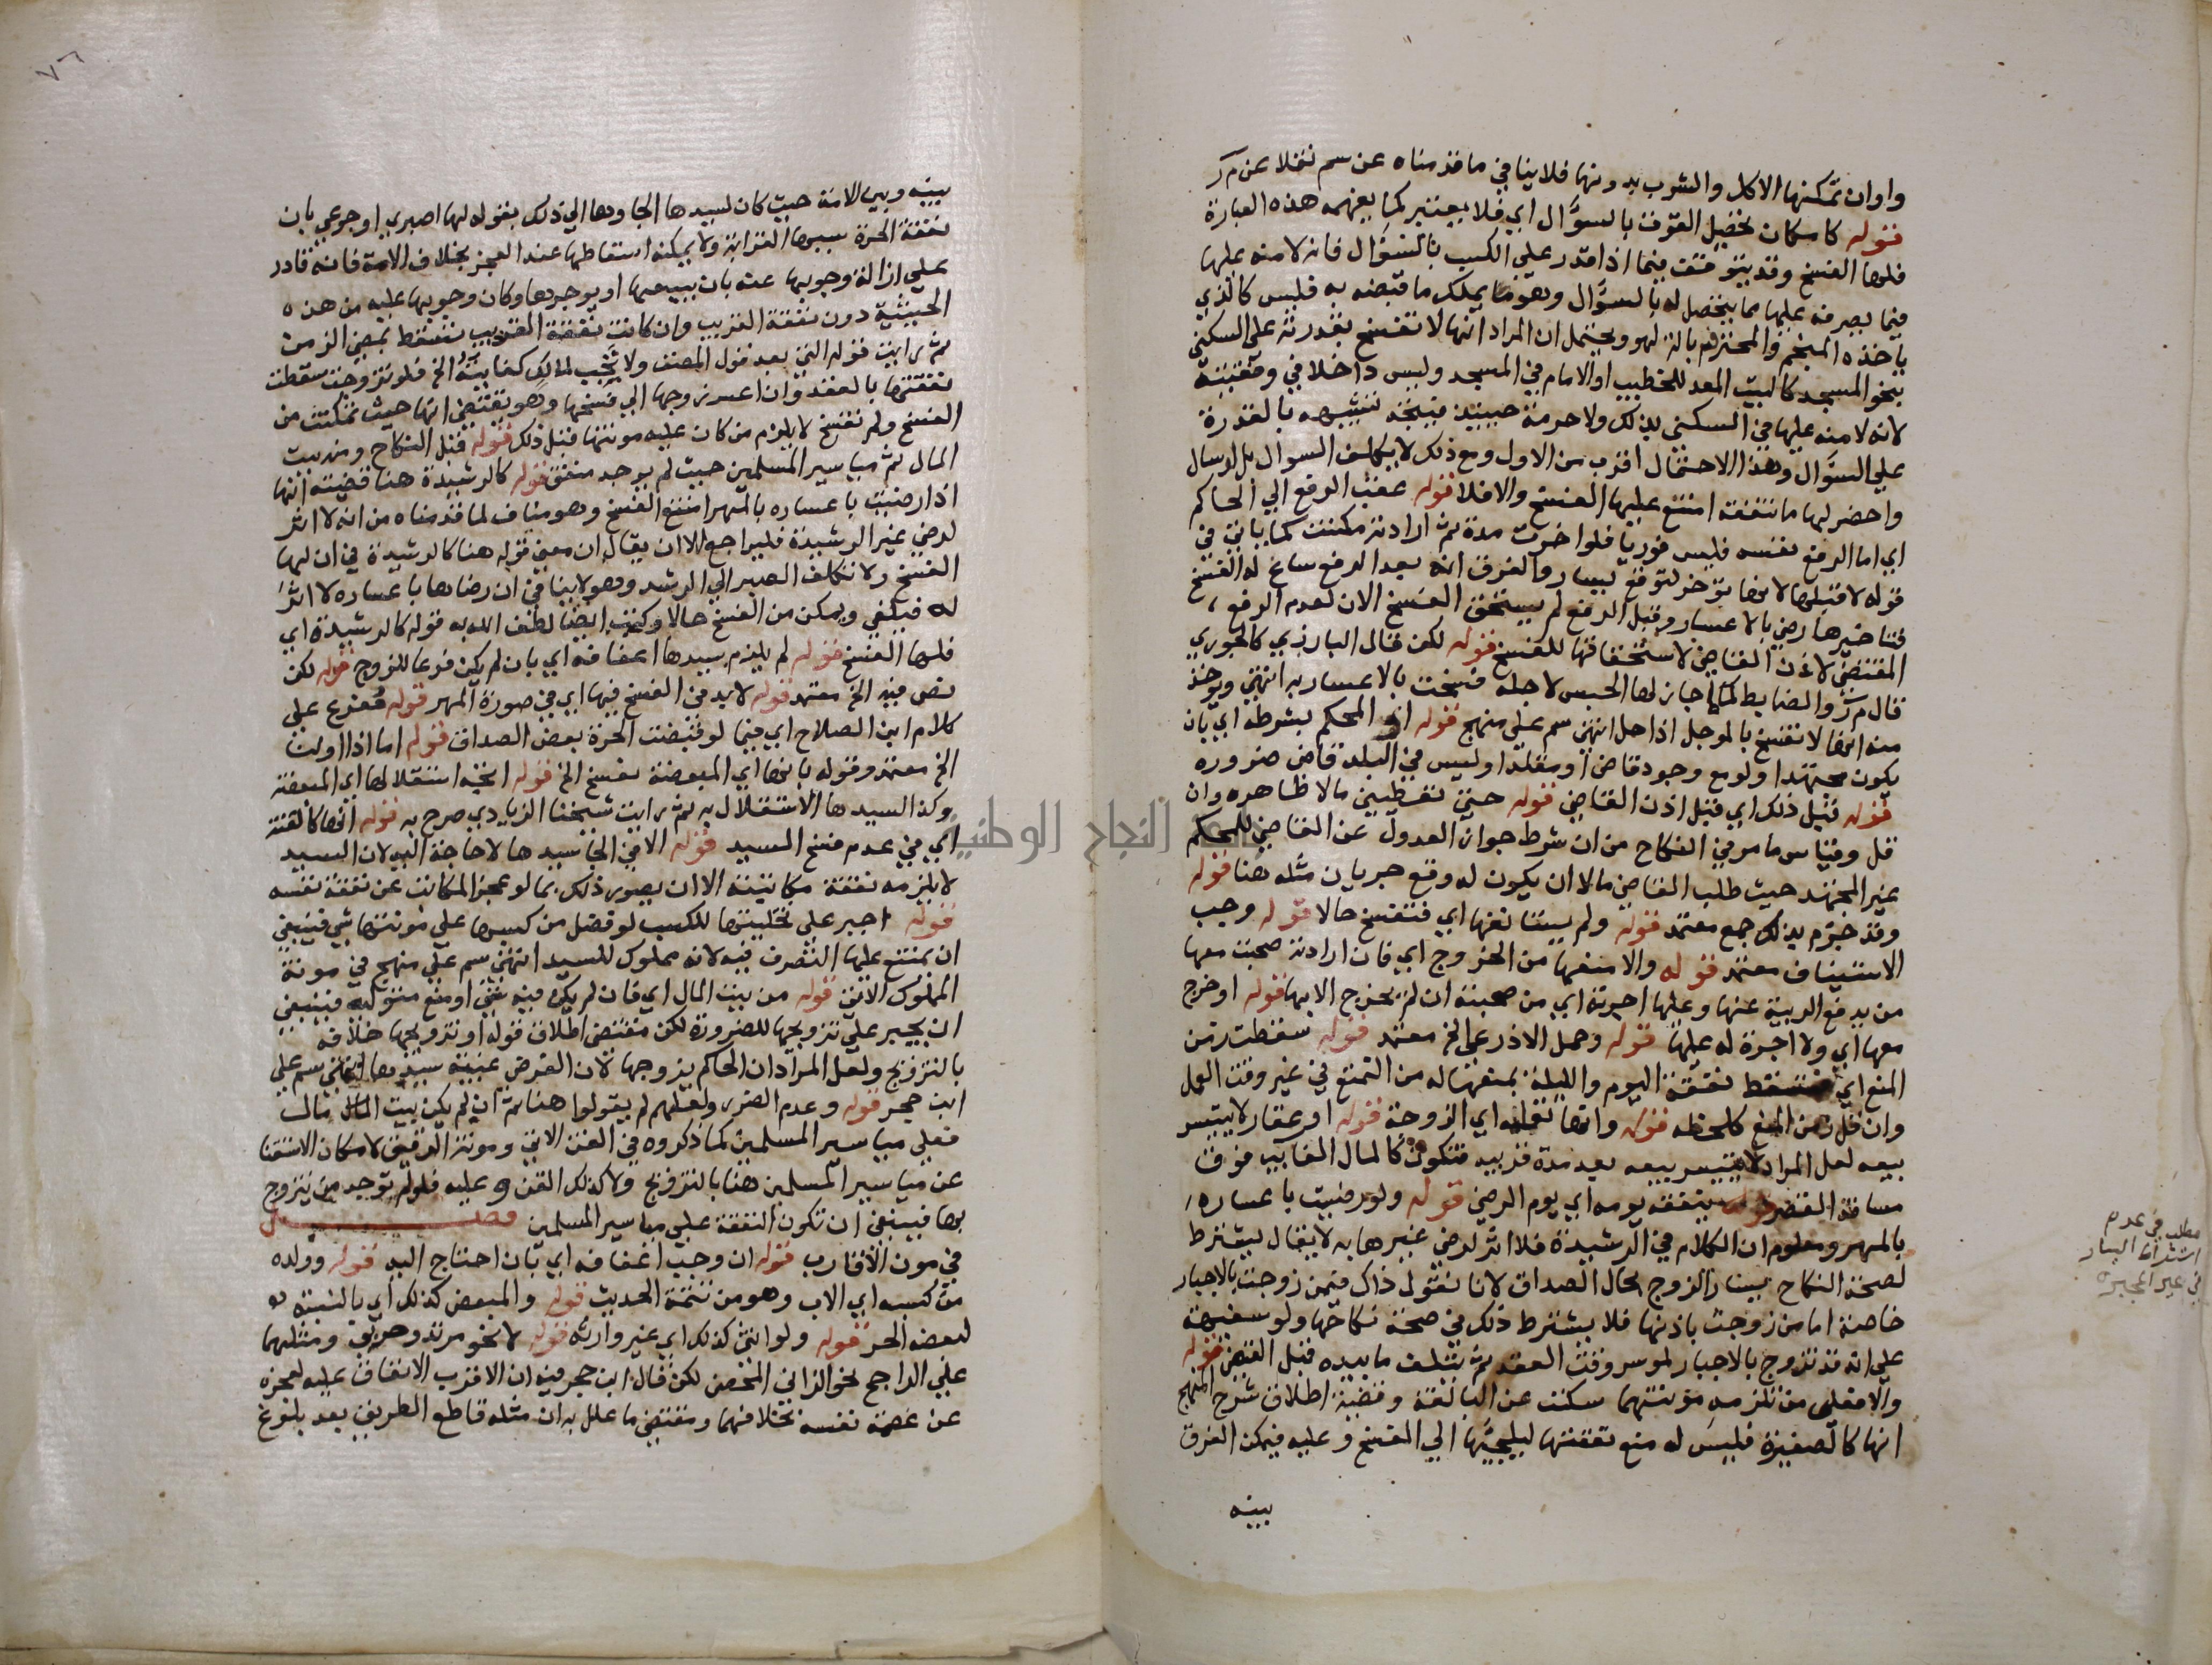 واوان تمكنها الاكل والشرب بدونها فلاينافي ماقدمناه عن سم نقلا عن م ر
قوله كامكان تحصيل القوت بالسؤال اي فلا يعتبر كما يفهمه هذه العبارة
فلها الفسخ وقد يتوقف فيما اذا قدر علي الكسب بالسؤال فانه لامنه عليها
فيما يصرفه عليها مما يتحصل له بالسؤال وهو يملك ماقبضه به فليس كالذي
ياخذه المنجم والمحترف بالة لهو ويحتمل ان المراد انها لاتفسخ بقدرته علي السكني
بنحو المسجد كالبيت المعد للخطيب او الامام في المسجد وليس داخلا في وقفيته
لانه لامنه عليها في السكني بذلك ولاحرمة حينئذ فيتجه تشبيهه بالقدرة
علي السؤال وهذا الاحتمال اقرب من الاول ومع ذلك لايكلف السوال بل لوسال
واحضر لها ماتنفقه امتنع عليها الفسخ والافلا قوله عقب الرفع الي الحاكم
اي اما الرفع نفسه فليس فوريا فلو اخرت مدة ثم ارادته مكنت كما ياتي في
قوله لا قبلها لانها تؤخر لتوقع يسار والفرق انه بعد الرفع ساغ لها الفسخ
فتاخيرها رضي بالاعسار وقبل الرفع لم يستحق الفسخ الان لعدم الرفع
المقتضي لاذن القاضي لاستحقاقها للفسخ قوله لكن قال البارزي كالجوري
قال م ر والضابط كلما جاز لها الحبس لاجله فسخت بالاعسار به انتهي ويؤخذ
منه انها لاتفسخ بالموجل اذا حل انتهي سم علي منهج قوله او المحكم بشرطه اي بان
يكون مجتهدا ولو مع وجود قاض او مقلدا وليس في البلد قاضي ضروره
قوله قبل ذلك اي قبل اذن القاضي قوله حتي تعطيني مالا ظاهره وان
قل وقياس مامر في النكاح من ان شرط جواز العدول عن القاضي للمحكم
غير المجتهد حيث طلب القاضي مالا ان يكون له وقع جريان مثله هنا قوله
وقد جزم بذلك جمع معتمد قوله ولم يستانفها اي فتفسخ حالا قوله وجب
الاستيناف معتمد قوله والا منعها من الخروج اي فان ارادته صحبت معها
من يدفع الريبة عنها وعليها اجرته اي من صحبته ان لم يخرج الابها قوله او خرج
معها اي ولا اجرة له عليها قوله وحمل الاذرعي الخ معتمد قوله سقطت زمن
المنع اي فتسقط نفقة اليوم والليلة بمنعها له من التمتع في غير وقت العمل
وان قل زمن المنع كلحظه قوله وانها اي الزوجة قوله او عقار لايتيسر
بيعه لعل المراد لايتيسر بيعه بعد مدة قريبه فتكون كالمال الغايب فوق
مسافة القصر قوله بنفقة يومه اي يوم الرضي قوله ولو رضيت باعساره
بالمهر ومعلوم ان الكلام في الرشيدة فلا اثر لرضي غيرها به لايقال يشترط
لصحة النكاح يسار الزوج بحال الصداق لانا نقول ذاك فيمن زوجت بالاجبار
خاصة اما من زوجت باذنها فلا يشترط ذلك في صحة نكاحها ولو سفيهة
علي انه قد تزوج بالاجبار لموسر وقت العقد ثم يتلف مابيده قبل القبض قوله
والافعلي من تلزمه مؤنتهما سكت عن البالغة وقضية اطلاق شرح المنهج
انها كالصغيرة فليس له منع نفقتها ليلجيها الي الفسخ وعليه فيمكن الفرق
بينه
مطلب في عدم
اشتراط اليسار
في غير المجبرة
٧٦
بينه وبين الامة حيث كان لسيدها الجاوها الي ذلك بقوله لها اصبري او جوعي بان
نفقة الحرة سببها القرابة ولايمكنه اسقاطها عند العجز بخلاف الامة فانه قادر
علي ازالة وجوبها عنه بان يبيعها او يوجرها وكان وجوبها عليه من هذه
الحيثية دون نفقة القريب وان كانت نفقة القريب تسقط بمضي الزمن
ثم رايت قوله التي بعد قول المصنف ولاتجب لمالك كفايته الخ فلو تزوجت سقطت
نفقتها بالعقد وان اعسر زوجها الي فسخها وهو يقتضي انها حيث تمكنت من
الفسخ ولم تفسخ لايلزم من كان عليه مونتها قبل ذلك قوله قبل النكاح ومن بيت
المال ثم مياسير المسلمين حيث لم يوجد منفق قوله كالرشيدة هنا قضيته انها
اذا رضيت باعساره بالمهر امتنع الفسخ وهو مناف لما قدمناه من انه لا اثر
لرضي غير الرشيدة فليراجع الا ان يقال ان معني قوله هنا كالرشيدة في ان لها
الفسخ ولاتكلف الصبر الي الرشد وهو لاينافي ان رضاها باعساره لا اثر
له فيكفي ويمكن من الفسخ حالا وكتب ايضا لطف الله به قوله كالرشيدة اي
فلها الفسخ قوله لم يلزم سيدها اعفافه اي بان لم يكن فرعا للزوج قوله لكن
نص فيه الخ معتمد قوله لابد في الفسخ فيها اي في صورة المهر قوله مفرع علي
كلام ابن الصلاح اي فيما لو قبضت الحرة بعض الصداق قوله اما اذا اولت
الخ معتمد وقوله بانها اي المبعضة تفسخ الخ قوله اتجه استقلالها اي المبعضة
وكذا السيدها الاستقلال به ثم رايت شيخنا الزيادي صرح به قوله انها كالقنة
اي في عدم فسخ السيد قوله الا في الجا سيدها لاحاجة اليه لان السيد
لايلزمه نفقة مكاتبته الا ان يصور ذلك بما لو عجز المكاتب عن نفقة نفسه
قوله اجبر علي تخليتها للكسب لو فضل من كسبها علي مونتها شي فينبغي
ان يمتنع عليها التصرف فيه لانه مملوك للسيد انتهي سم علي منهج في مونة
المملوك الاتي قوله من بيت المال اي فان لم يكن فيه شي او منع متوليه فينبغي
ان يجبر علي تزويجها للضرورة لكن مقتضي اطلاق قوله او تزويجها خلافه
بالتزويج ولعل المراد ان الحاكم يزوجها لان الفرض غيبة سيدها انتهي سم علي
ابن حجر قوله وعدم الضرر ولعلهم لم يقولوا هنا ثم ان لم يكن بيت المال مال
فعلي مياسير المسلمين كما ذكروه في القن الاتي ومونة الرقيق لامكان الاستغنا
عن مياسير المسلمين هنا بالتزويج ولاكذلك القن وعليه فلو لم توجد من يتزوج
بها فينبغي ان تكون النفقة علي مياسير المسلمين فصل
في مون الاقارب قوله ان وجب اعفافه اي بان احتاج اليه قوله وولده
من كسبه اي الاب وهو من تتمة الحديث قوله والمبعض كذلك اي بالنسبة
لبعضه الحر قوله ولو انثي كذلك اي غير وارثه قوله لا نحو مرتد وحربي ومثلهما
علي الراجح نحو الزاني المحصن لكن قال ابن حجر فيه ان الاقرب الانفاق عليه لعجزه
عن عصمة نفسه بخلافهما ومقتضي ما علل به ان مثله قاطع الطريق بعد بلوغ
النجاح الوطنية